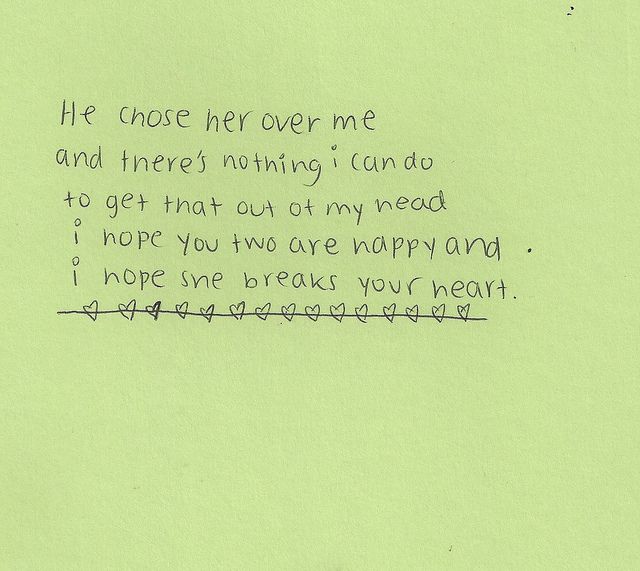 He chose her over me
and there's nothing i can do
to get that out of my head
i hope you two are happy and
i hope she breaks your heart.